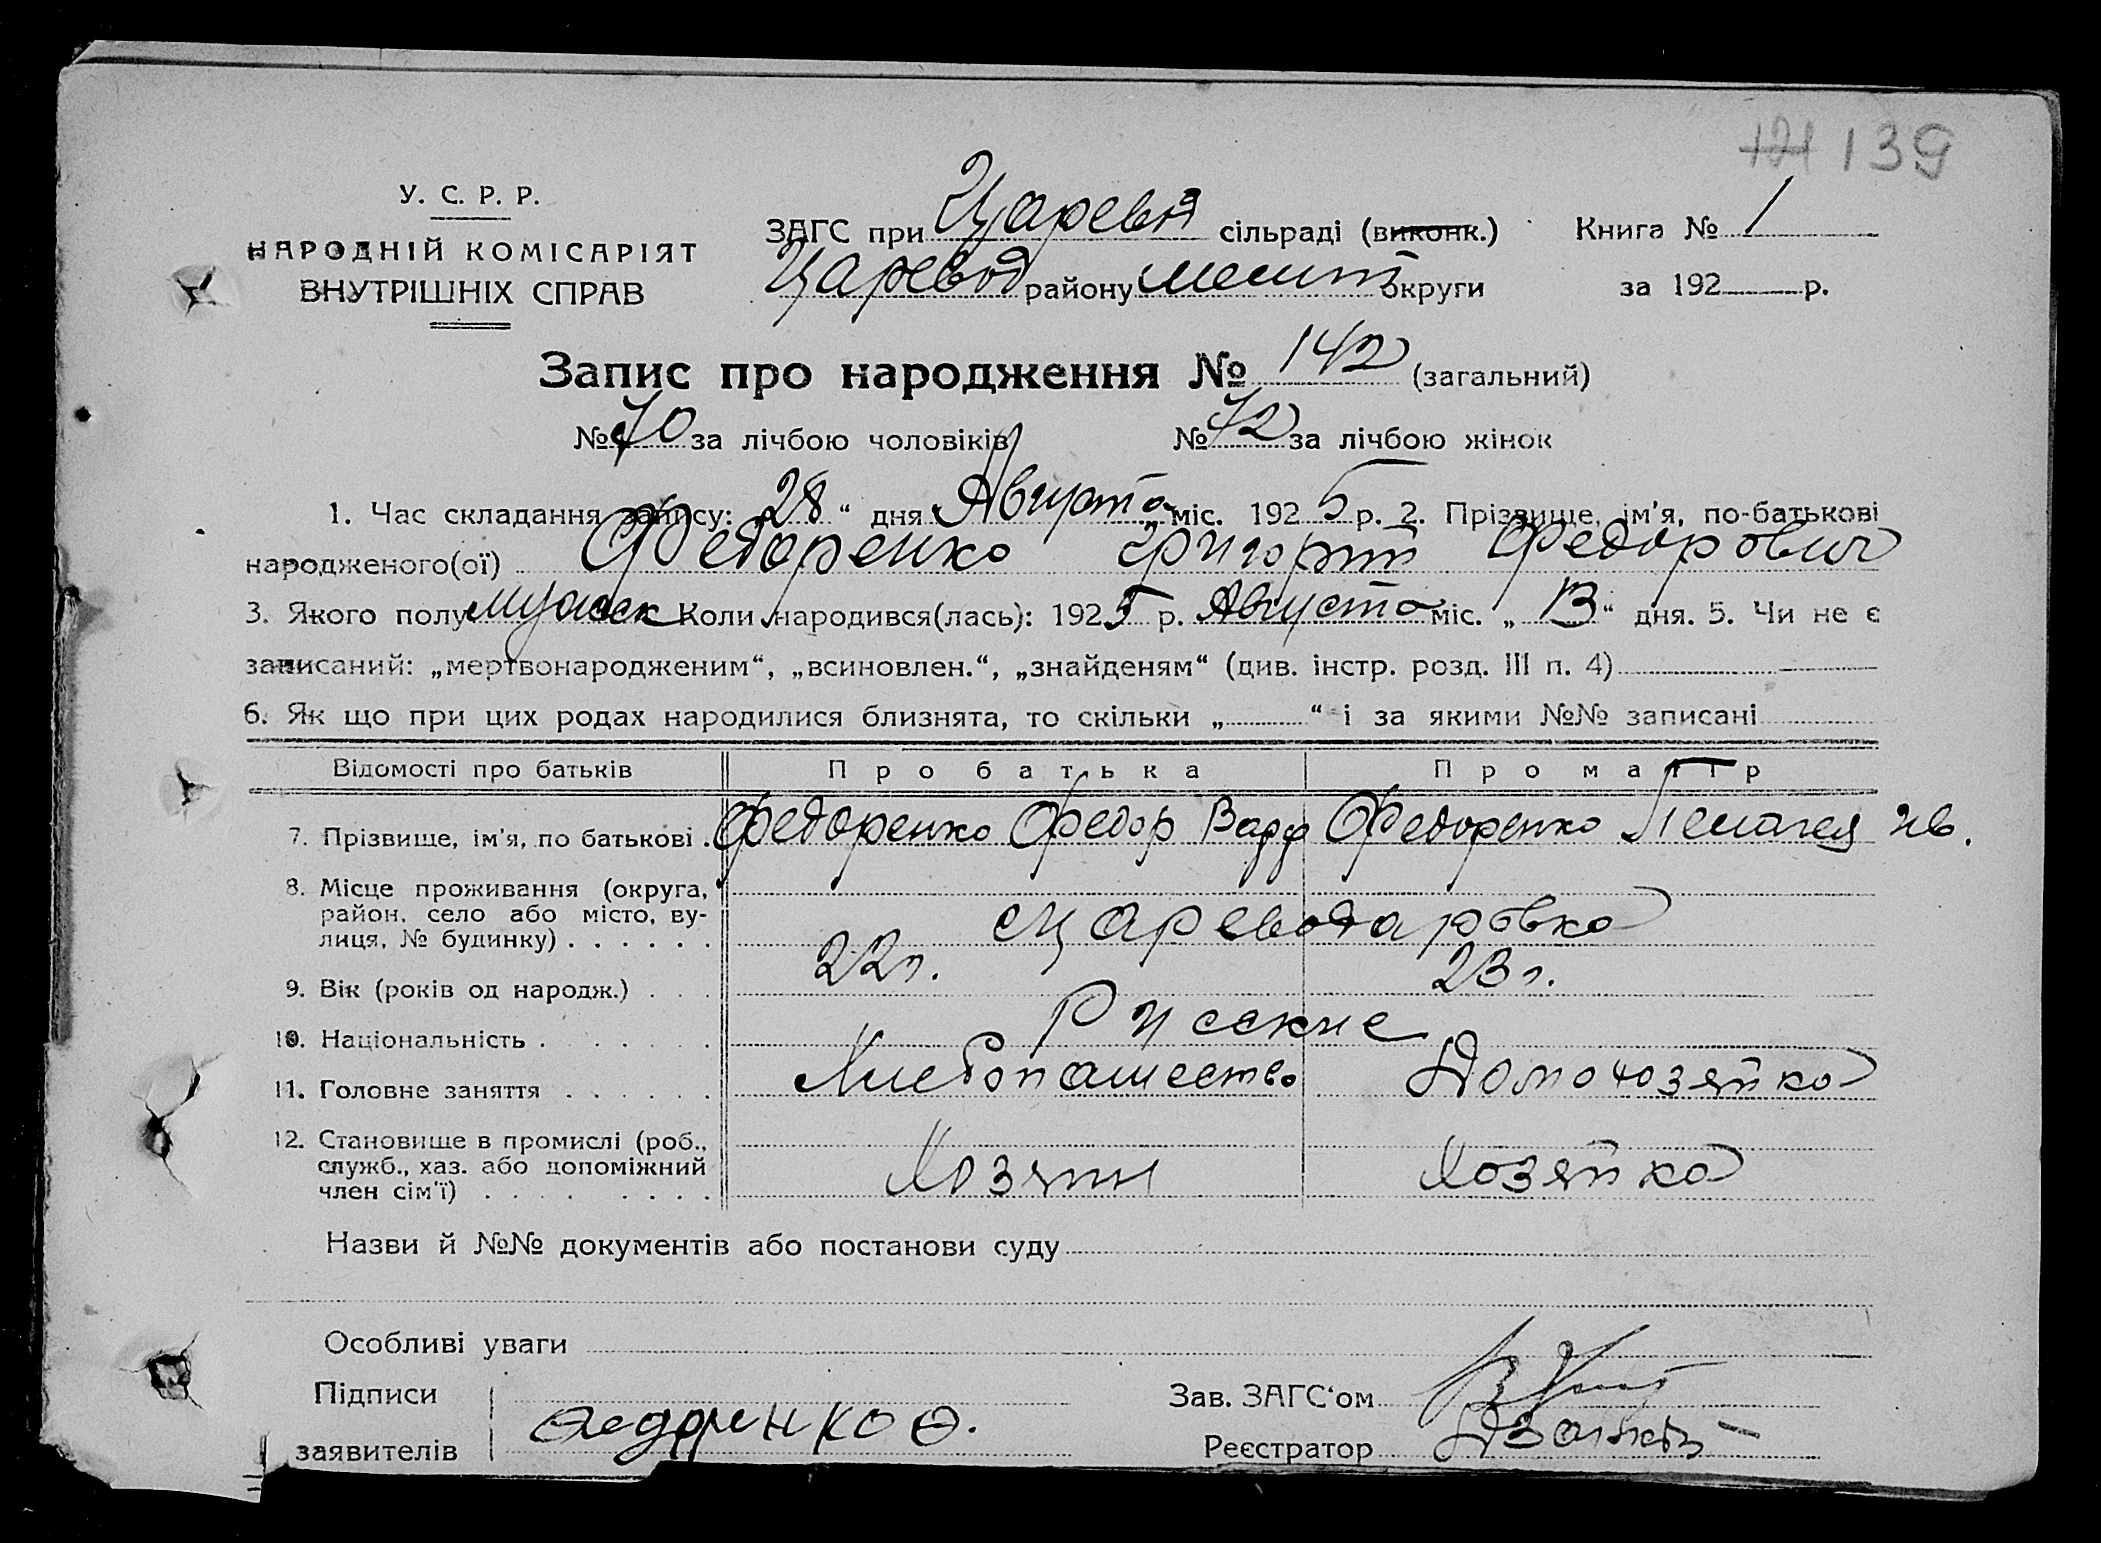 121 139
У. С. Р. Р.
НАРОДНІЙ КОМІСАРІЯТ
ВНУТРІШНІХ СПРАВ
ЗАГС при Царевод сільраді (виконк.) Книга № 1
Царевод району мелит округи за 192 р.
Запис про народження № 142 (загальний)
№ 70 за лічбою чоловіків № 72 за лічбою жінок
1. Час складання запису: „28“ дня Августа міс. 1925 р. 2. Прізвище, ім'я, по-батькові
народженого(ої) Федоренко Григорій Федорович
3. Якого полу мужск Коли народився(лась): 1925 р. Августа міс. „13“ дня. 5. Чи не є
записаний: „мертвонародженим“, „всиновлен.“, „знайденям“ (див. інстр. розд. III п. 4)
6. Як що при цих родах народилися близнята, то скільки „ “ і за якими №№ записані
Відомості про батьків Про батька Про матір
7. Прізвище, ім'я, по батькові . Федоренко Федор Варф Федоренко Пелагея ив.
8. Місце проживання (округа,
район, село або місто, ву-
лиця, № будинку) . . . . . . с Цареводаровка
9. Вік (років од народж.) . . . 22 л. 23 л.
10. Національність . . . . . . Русские
11. Головне заняття . . . . . . Хлебопашество Домохозяйка
12. Становище в промислі (роб.,
служб., хаз. або допоміжний
член сім'ї) . . . . . . . . Хозяин Хозяйка
Назви й №№ документів або постанови суду
Особливі уваги
Підписи Зав. ЗАГС'ом
заявителів Федоренко Ѳ. Реєстратор